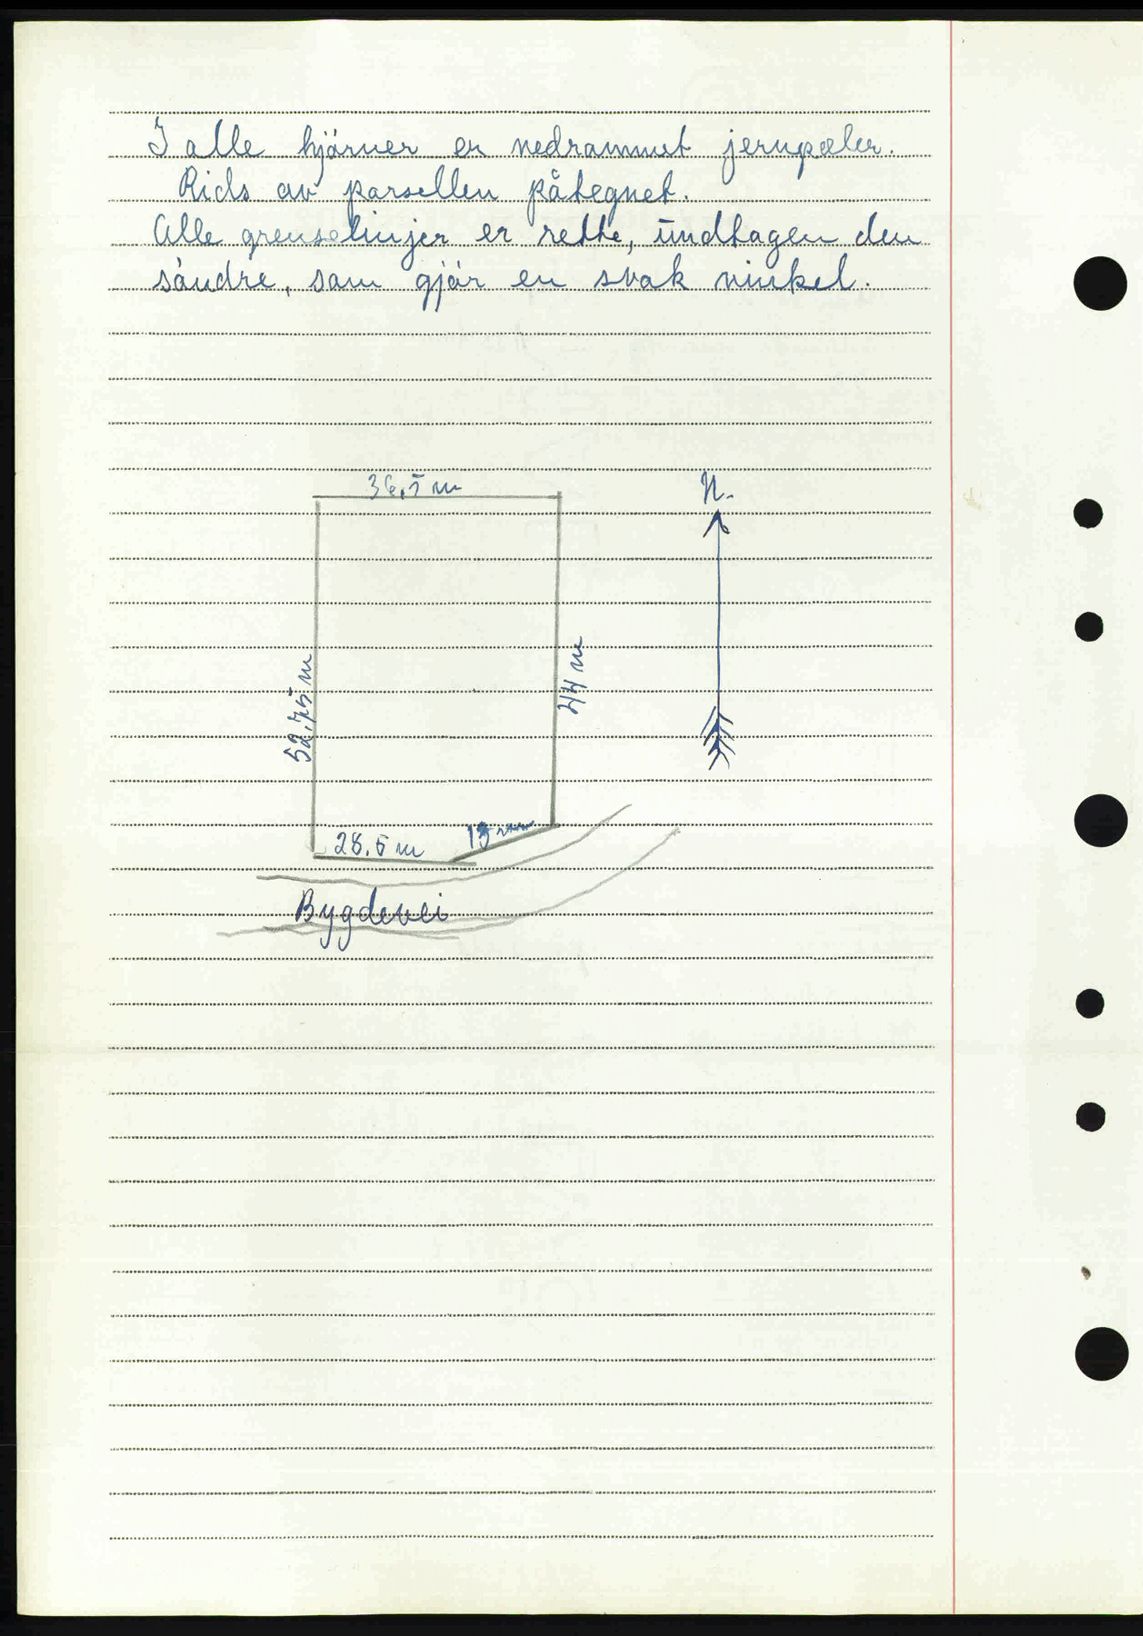 I alle hjörner er nedrammet jernpæler.
Rids av parsellen påtegnet.
Alle grenselinjer er rette, undtagen den
söndre, som gjör en svak vinkel.
36,5 m
N.
52,75 m
44 m
28,5 m
13 m
Bygdevei